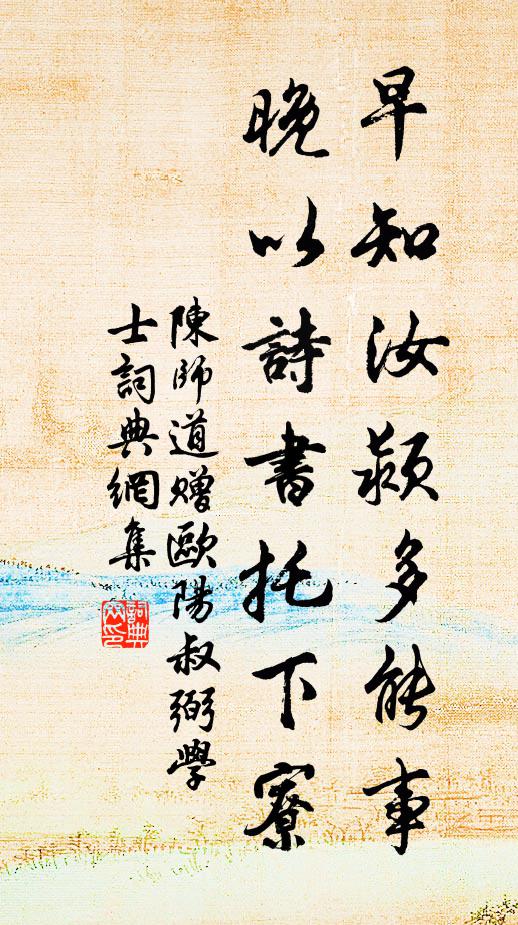 早知汝颍多能事
晚以詩書托下寮
陳師道贈歐陽叔弼學
士詞典網集